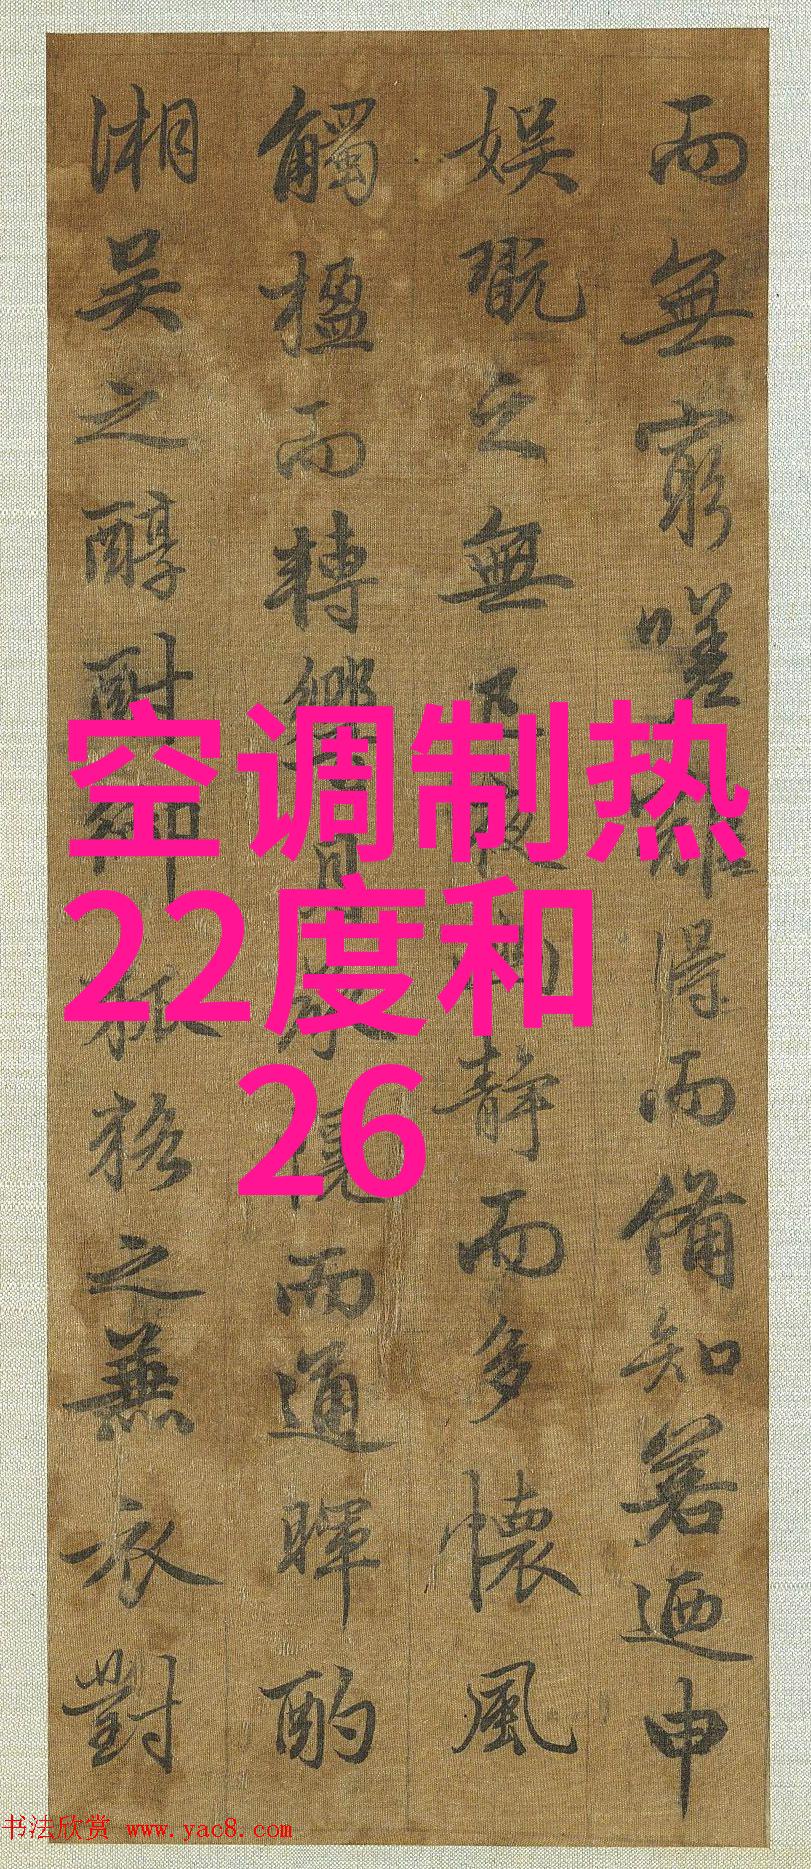 而無窮嗟難得而備知爰迺申
娛翫之無
靜而多懷風
觸楹而轉響
而通暉酌
湘吳之醇酎
狐狢之蕪衣對
空调制热
22度和
26
书法欣赏 www.yac8.com